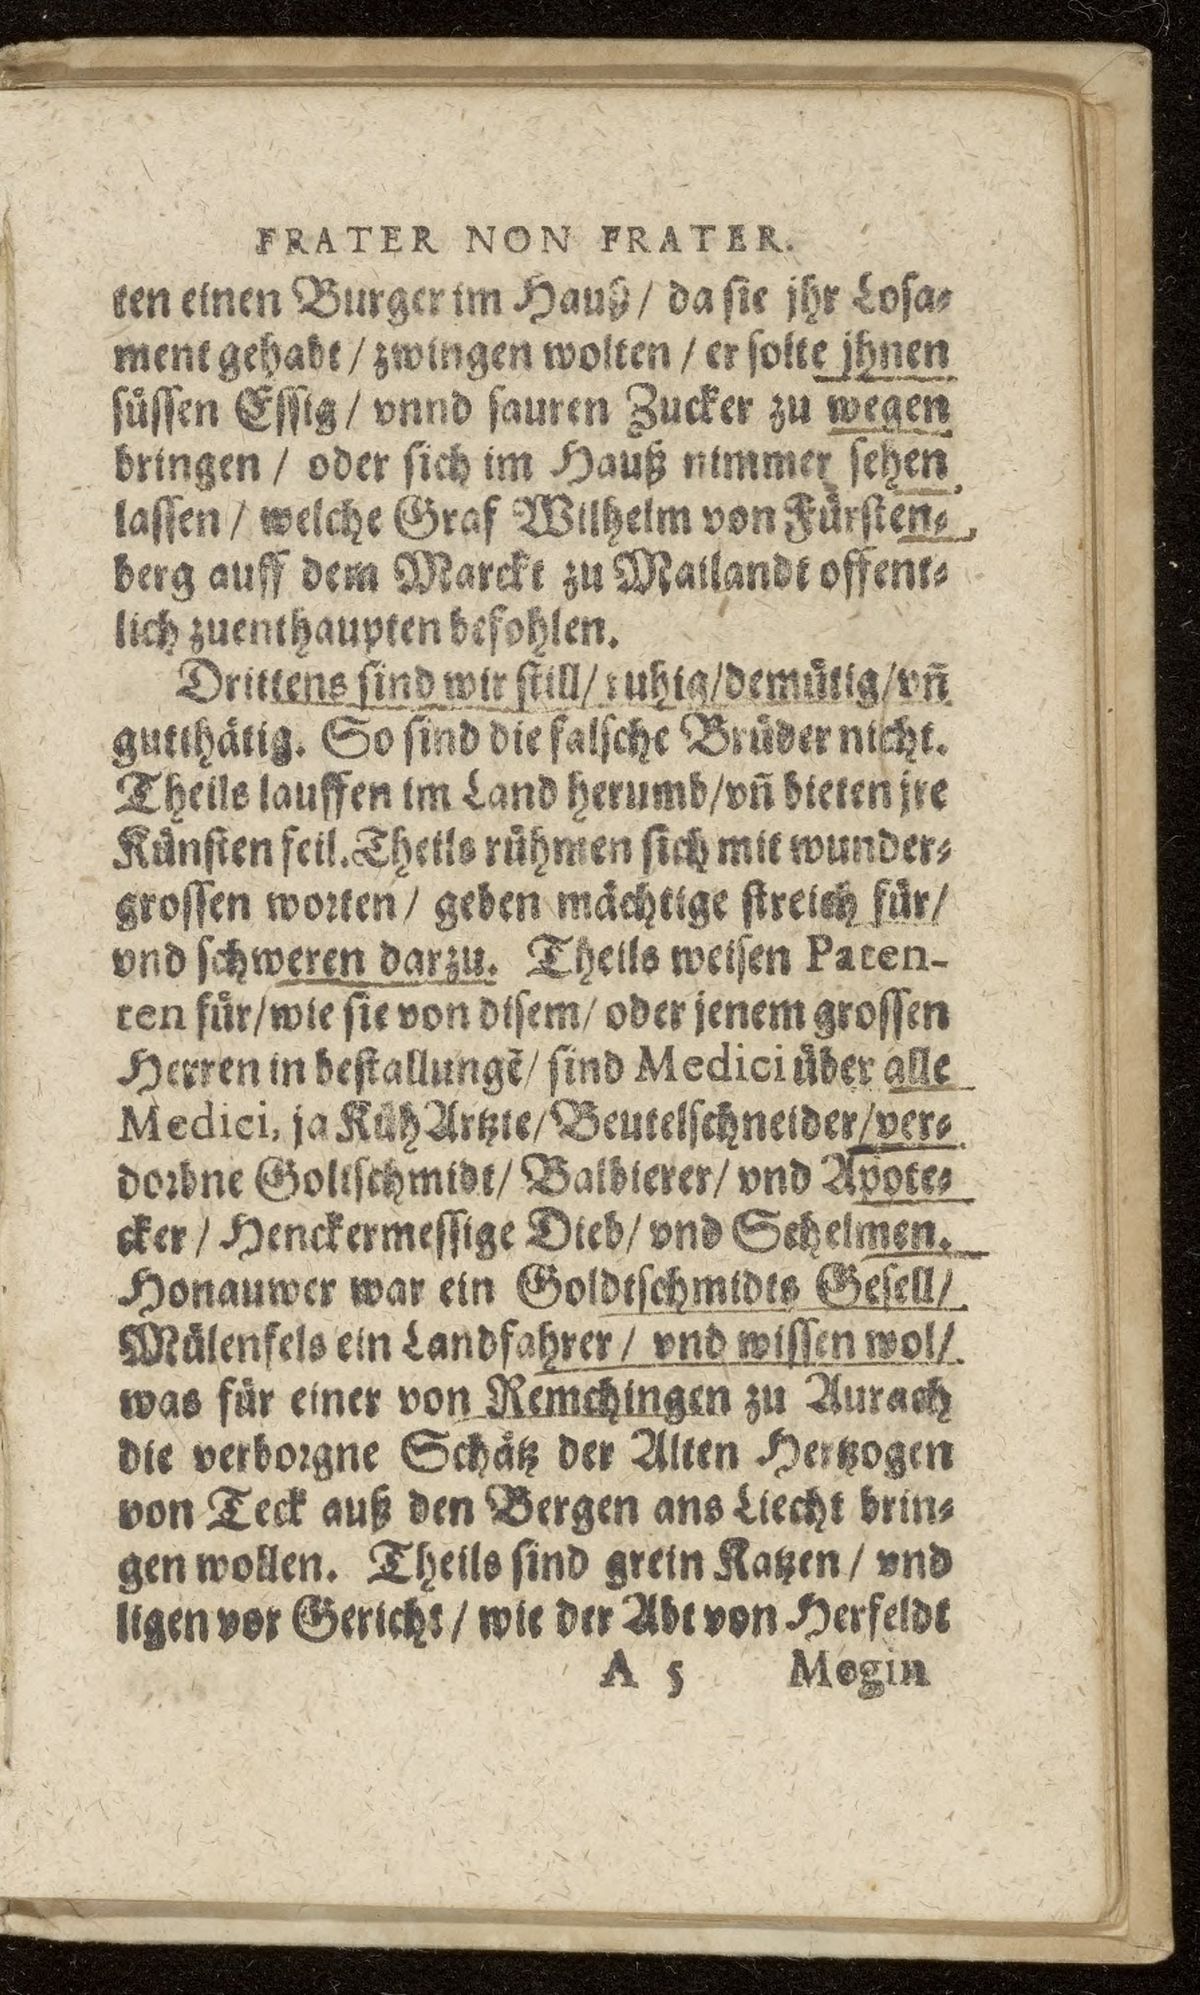 FRATER NON FRATER.
ten einen Burger im Hauß / da sie jhr Losa⸗
ment gehabt / zwingen wolten / er solte jhnen
süssen Essig / vnnd sauren Zucker zu wegen
bringen / oder sich im Hauß nimmer sehen
lassen / welche Graf Wilhelm von Fürsten⸗
berg auff dem Marckt zu Mailandt offent⸗
lich zuenthaupten befohlen.
Drittens sind wir still / ruhig / demütig / vñ
gutthätig. So sind die falsche Brüder nicht.
Theils lauffen im Land herumb / vñ bieten jre
Künsten feil. Theils rühmen sich mit wunder⸗
grossen worten / geben mächtige streich für /
vnd schweren darzu. Theils weisen Paten-
ten für / wie sie von disem / oder jenem grossen
Herren in bestallungẽ / sind Medici über alle
Medici, ja Küh Artzte / Beutelschneider / ver⸗
dorbne Goltschmidt / Balbierer / vnd Apote⸗
cker / Henckermessige Dieb / vnd Schelmen.
Honauwer war ein Goldtschmidts Gesell /
Mülenfels ein Landfahrer / vnd wissen wol /
was für einer von Remchingen zu Aurach
die verborgne Schätz der Alten Hertzogen
von Teck auß den Bergen ans Liecht brin⸗
gen wollen. Theils sind grein Katzen / vnd
ligen vor Gericht / wie der Abt von Herfeldt
A 5 Megin